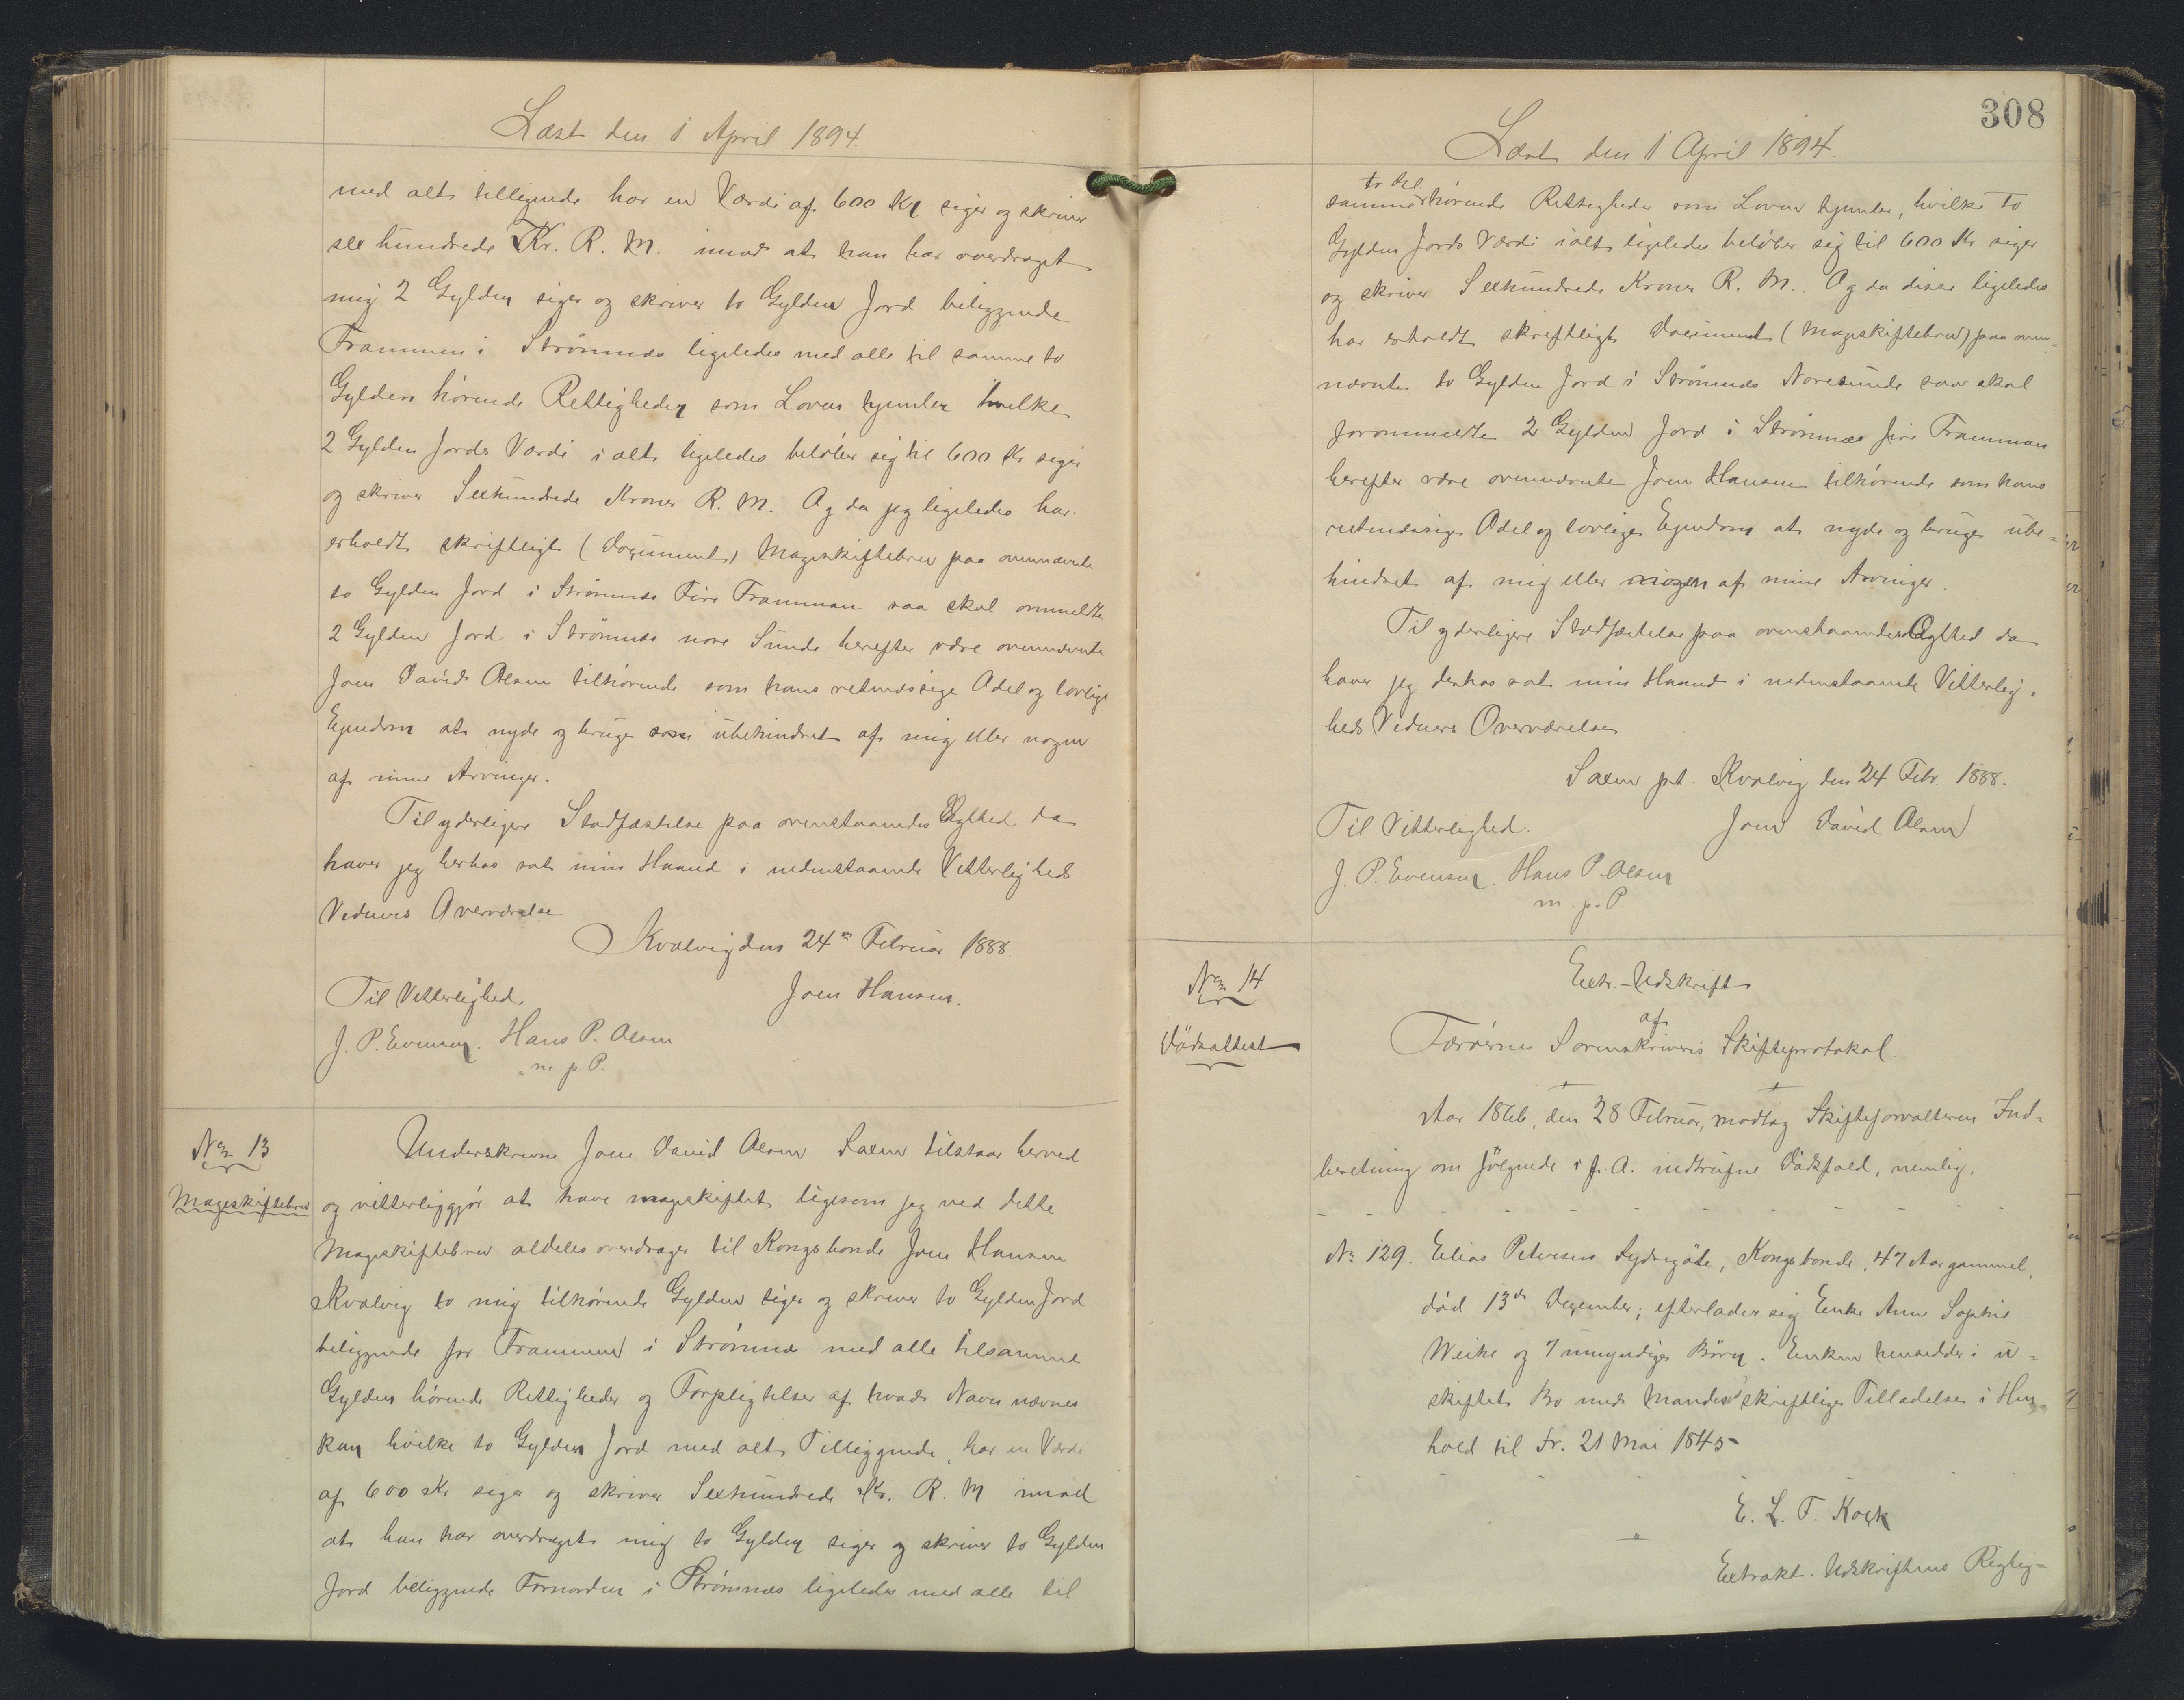 Læst den 1 April 1894.
med alt tilligende har en Værdi af 600 Kr siger og skriver
sex hundrede Kr. R. M. imod at han har overdraget
mig 2 Gylden siger og skriver to Gylden Jord beliggende
Frammen i Strömnæs ligeledes med alle til samme to
Gylden hörende Rettigheder som Loven hjemler hvilke
2 Gylden Jords Værdi i alt ligeledes belöber sig til 600 Kr siger
og skriver Sexhundrede Kroner R. M. Og da jeg ligeledes har
erholdt skriftligt (Document) Mageskiftebrev paa ovennævnte
to Gylden Jord i Strömnæs Fire Framman saa skal ommeldte
2 Gylden Jord i Strömnæs nore Sunde herefter være ovennævnte
Joen David Olsen tilhörende som hans retmæssige Odel og lovlige
Ejendom at nyde og bruge som ubehindret af mig eller nogen
af mine Arvinger.
Til yderligere Stadfæstelse paa ovenstaaendes Ægthed da
haver jeg herhos sat min Haand i nedenstaaende Vitterligheds
Vidners Overværelse
Kvalvig den 24de Februar 1888.
Til Vitterlighed. Joen Hansen.
J. P. Evensen. Hans P. Olsen
m. p. P.
No 13
Mageskiftebrev
Underskrevne Joen David Olsen Saxen tilstaar herved
og vitterliggjör at have mageskiftet ligesom jeg ved dette
Mageskiftebrev aldeles overdrager til Kongsbonde Joen Hansen
Kvalvig to mig tilhörende Gylden siger og skriver to Gylden Jord
beliggende for Frammen i Strömnæs med alle tilsamme
Gylden hörende Rettigheder og Forpligtelser af hvad Navn nævnes
kan hvilke to Gylden Jord med alt Tilliggende, har en Værdi
af 600 Kr siger og skriver Sexhundrede Kr. R. M imod
at han har overdraget mig to Gylden siger og skriver to Gylden
Jord beliggende Fornorden i Strömnæs ligeledes med alle til
308
Læst den 1 April 1894.
to Gl.
samme hörende Rettigheder som Loven hjemler, hvilke to
Gylden Jords Værdi ialt ligeledes belöber sig til 600 Kr siger
og skriver Sexhundrede Kroner R. M. Og da disse ligeledes
har erholdt skriftligt Document (Mageskiftebrev) paa oven-
nævnte to Gylden Jord i Strömnæs Noresunde saa skal
forommeldte 2 Gylden Jord i Strömnæs fire Framman
herefter være ovennævnte Joen Hansen tilhörende som hans
retmæssige Odel og lovlige Ejendom at nyde og bruge ube-
hindret af mig eller nogen af mine Arvinger.
Til yderligere Stadfæstelse paa ovenstaaendes Ægthed da
haver jeg derhos sat min Haand i nedenstaaende Vitterlig-
heds Vidners Overværelse
Saxen pt. Kvalvig den 24 Febr. 1888.
Til Vitterlighed. Joen David Olsen
J. P. Evensen. Hans P. Olsen
m. p. P.
No 14
Dödsattest
Extr.-Udskrift
af
Færöernes Sorenskriveris Skifteprotokol.
Aar 1866, den 28 Februar, modtog Skifteforvalteren Ind-
beretning om fölgende i f. A. indtrufne Dödsfald, nemlig.
- - - - - - - - - - - -
No 129. Elias Petersen Sydregöte, Kongsbonde, 47 Aar gammel,
död 13de Dezember; efterlader sig Enke Anne Sophie
Weihe og 7 umyndige Börn. Enken hensidder i u-
skiftet Bo med Mandens skriftlige Tilladelse i Hen-
hold til Fr. 21 Mai 1845
- - - - - - - - - - -
E. L. T. Kock
Extrakt-Udskriftens Rigtig-